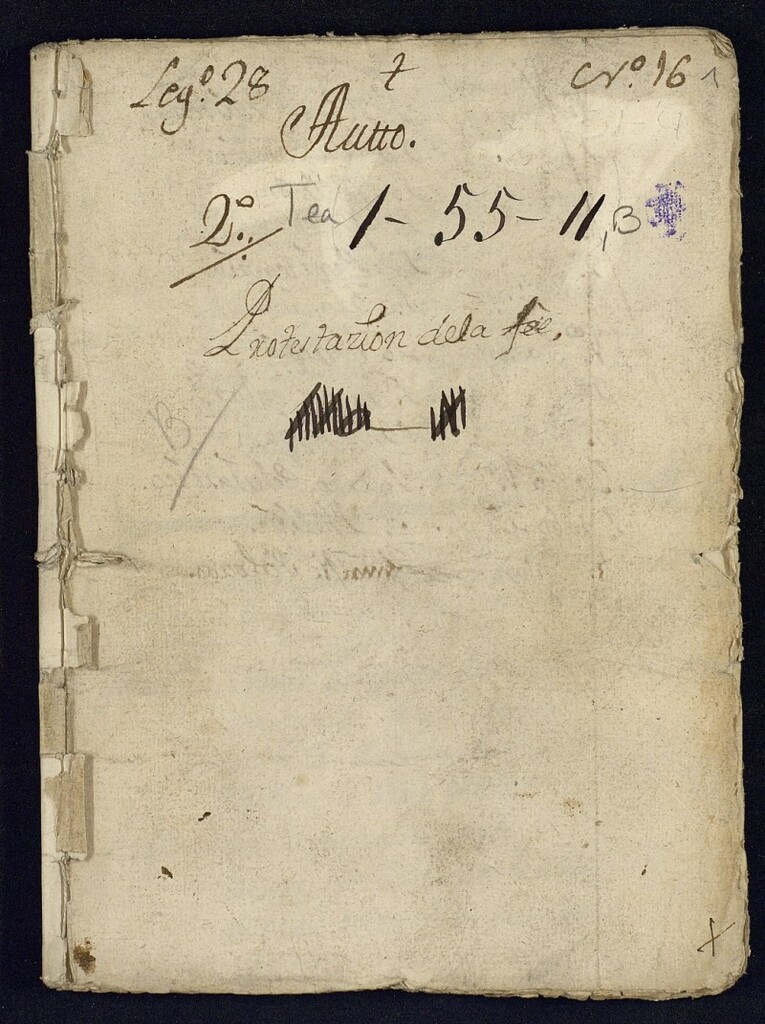 Leg.º 28 Nº. 16 1
Autto.
2º. Tea 1-55-11, B
Protestazion dela fee.
B